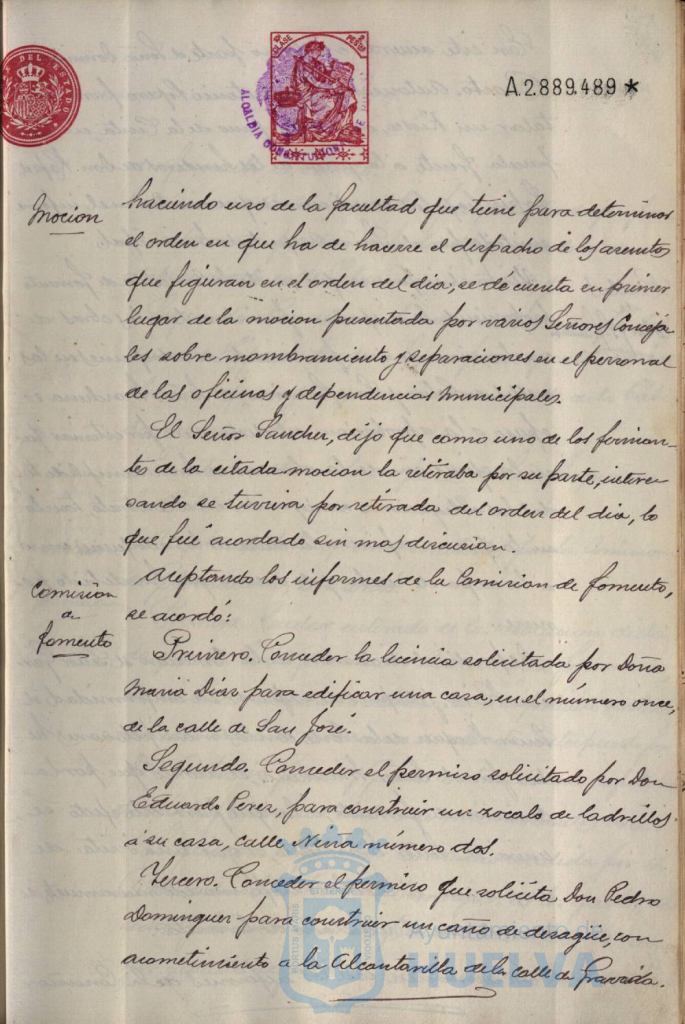 DEL ESTADO
CLASE
PESETAS
ALCALDIA CONSTITUCIONAL DE
A.2.889.489 *
Mocion
haciendo uso de la facultad que tiene para determinar
el orden en que ha de hacerse el despacho de los asuntos
que figuran en el orden del dia, se dé cuenta en primer
lugar de la mocion presentada por varios Señores Conceja
les sobre nombramiento y separaciones en el personal
de las oficinas y dependencias municipales.
El Señor Sanchez, dijo que como uno de los firman-
tes de la citada mocion la retiraba por su parte, intere
sando se tuviera por retirada del orden del dia, lo
que fué acordado sin mas discusion.
Comision
de
fomento
Aceptando los informes de la Comision de fomento,
se acordó:
Primero. Conceder la licencia solicitada por Doña
Maria Diaz para edificar una casa, en el número once,
de la calle de San José.
Segundo. Conceder el permiso solicitado por Don
Eduardo Perez, para construir un zocalo de ladrillos
á su casa, calle Niña número dos.
Tercero. Conceder el permiso que solicita Don Pedro
Dominguez para construir un caño de desagüe, con
acometimiento a la Alcantarilla de la calle de
Ayuntamiento de
HUELVA